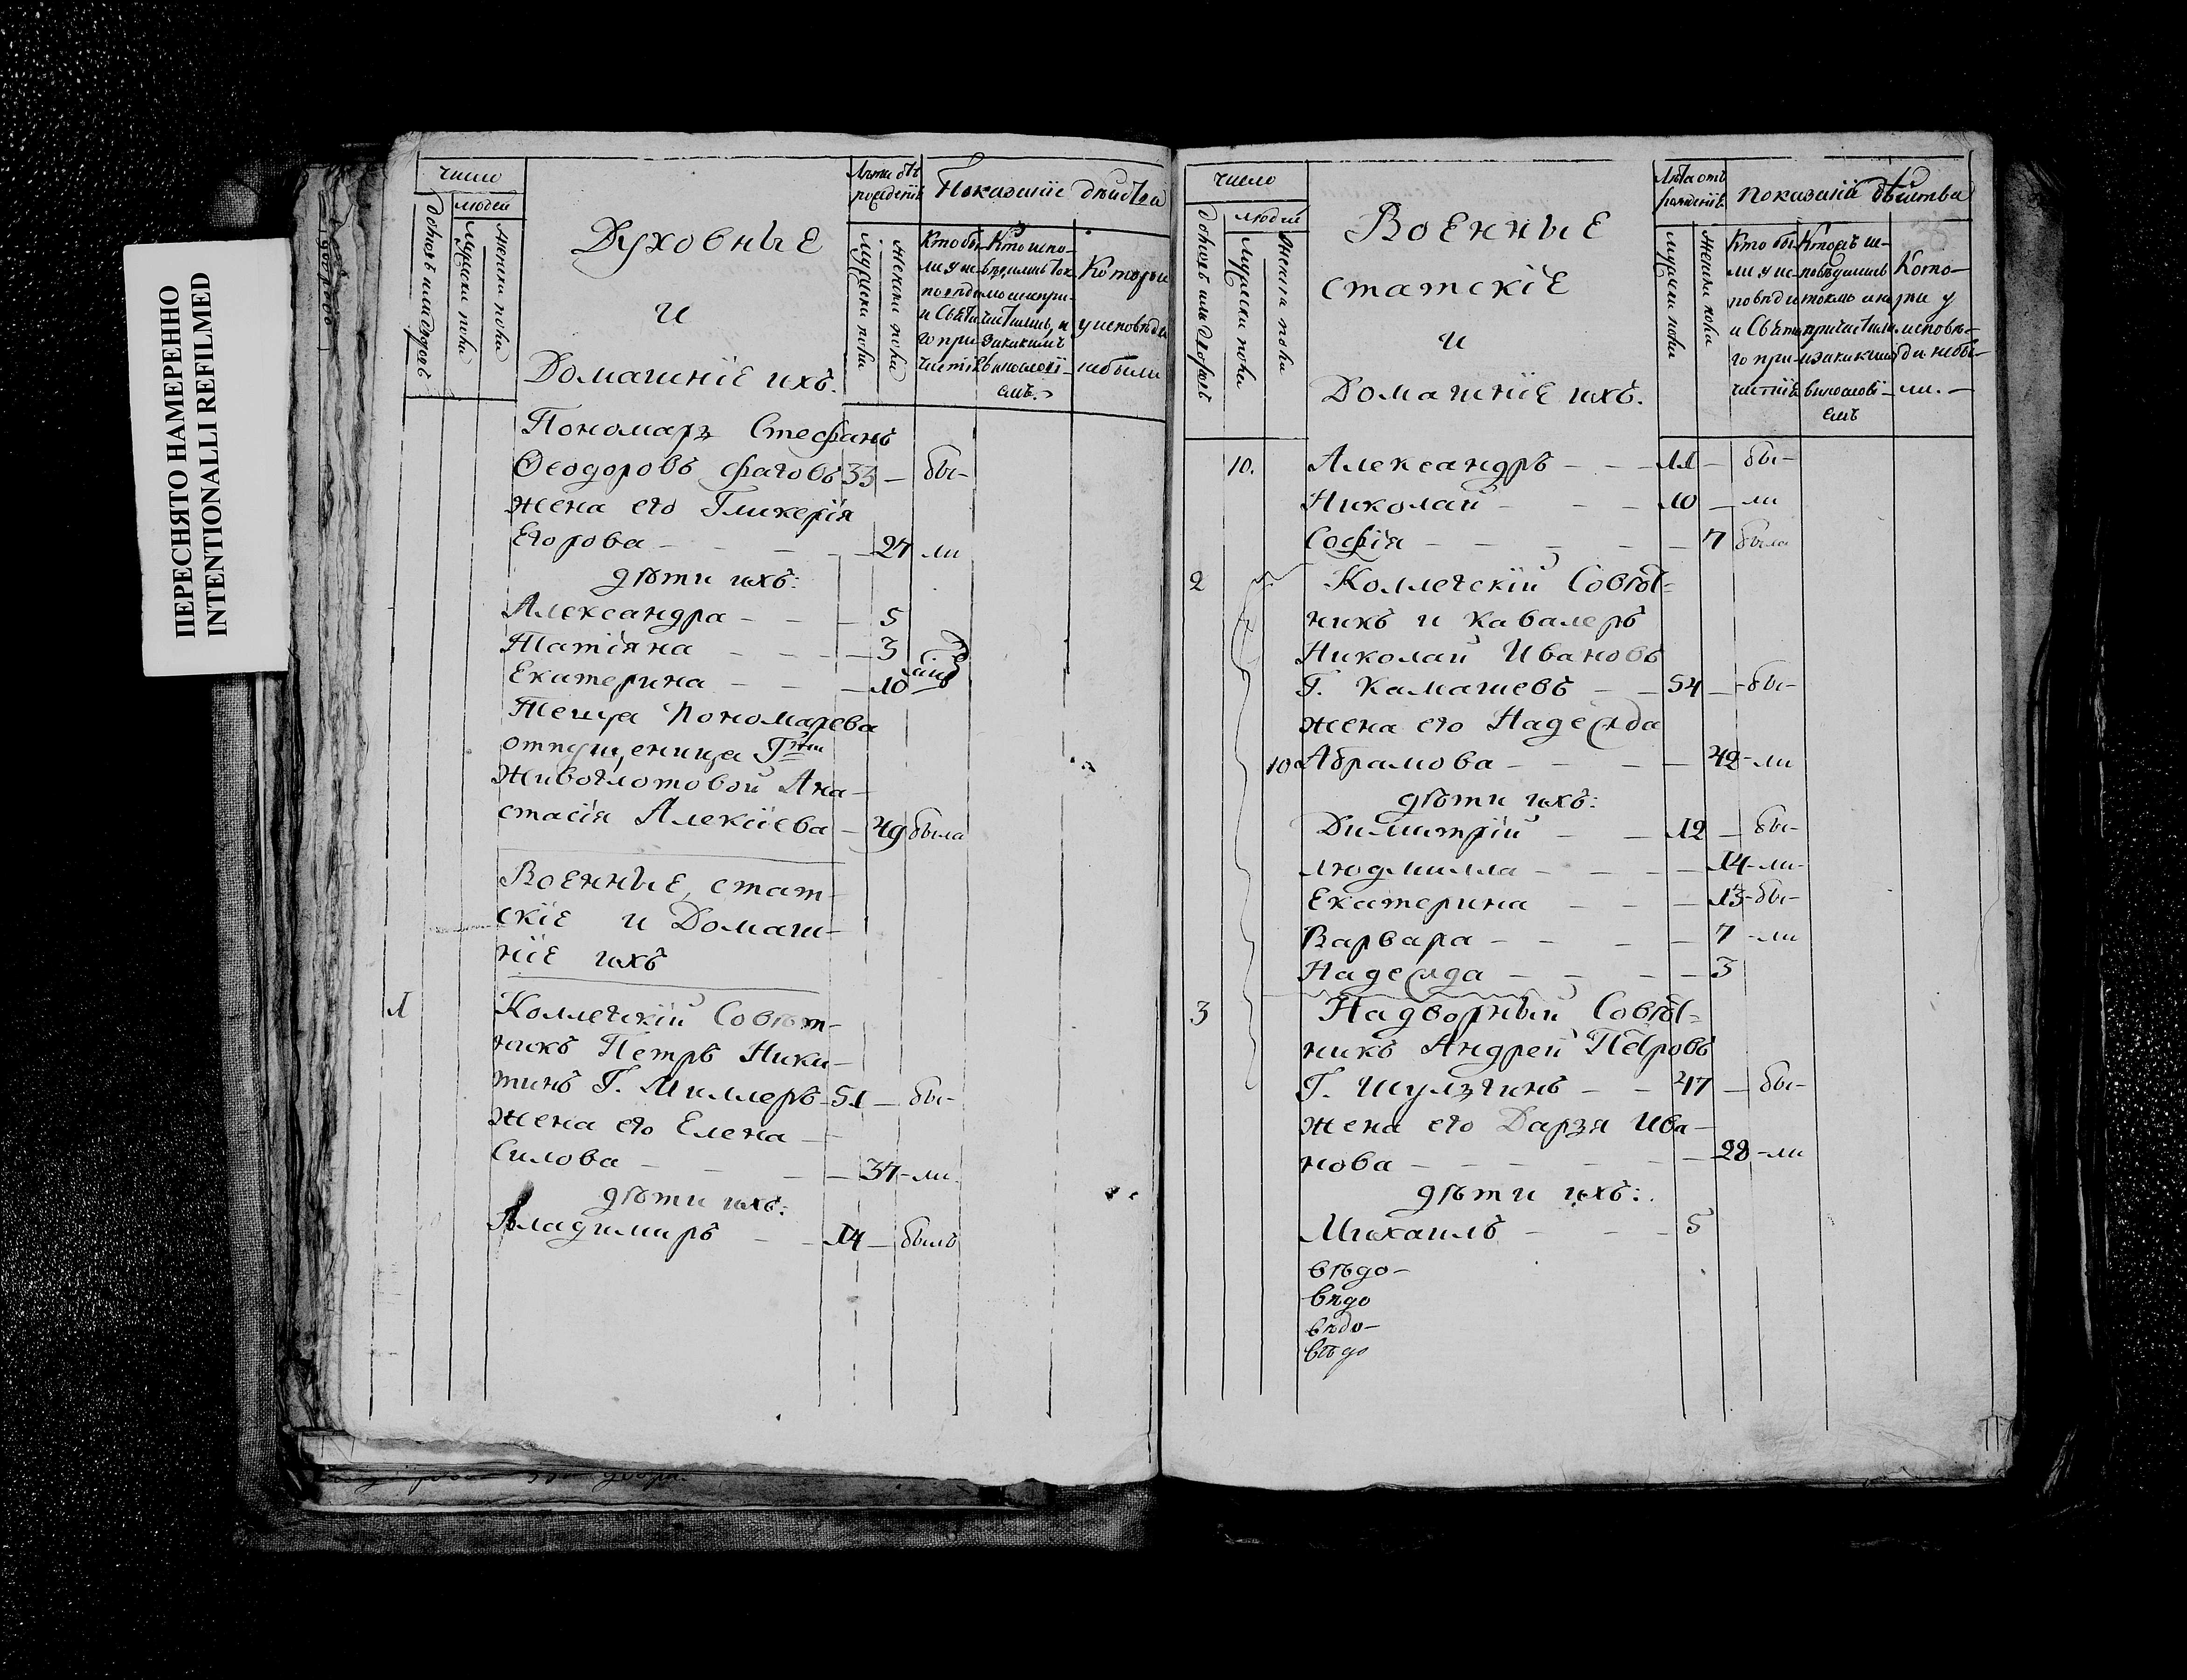 ПЕРЕСНЯТО НАМЕРЕННО
INTENTIONALLI REFILMED
число
людей
домовъ или дворовъ
Мужеска пола
Женска пола
Духовные
и
Домашнїе ихъ.
Лѣта отъ
рождения
Мужеска пола
Женска пола
Показанiе дѣиства
Кто бы-
ли у ис-
повѣди
и Свята-
го при-
частiя
Кто испо-
вѣдались ток
мо а непри-
частились, и
за какимъ
винословi-
емъ.
Которыи
у исповѣди
небыли
Пономарь Стефанъ
Ѳеодоровъ Фаговъ 33 — бы-
жена его Гликерїя
Егорова — 27 ли
дѣти ихъ:
Александра — 5
Татїяна — 3
Екатерина — 10
Теща Пономарева
отпущеница Гжи
Живоглотовой Ана-
стасїя Алексїева — 49 была
Военные, стат-
скїе и Домаш-
нїе ихъ
1 Коллегскїй Совѣт-
никъ Петръ Ники-
тинъ Г. Миллеръ 51 — бы-
жена его Елена
Силова — 37 - ли.
дѣти ихъ:
Владимиръ — 14 — былъ
число
людей
домовъ или дворовъ
Мужеска пола
Женска пола
Военные
статскїе
и
Домашнїе ихъ.
Лѣта отъ
рожденїя
Мужеска пола
Женска пола
показанїй дѣйства
Кто бы-
ли у ис-
повѣди
и Свята-
го при-
частїя
винословї-
емъ
Кото-
рыи у
исповѣ-
ди небы-
ли. —
10. Александръ — 11 — бы-
Николай — 10 — ли
Софїя — 7 была
2 Коллегскїй Совѣт=
никъ и кавалеръ
Николай Ивановъ
Г. Камашевъ — 54 — бы-
жена его Надежда
10 Абрамова — 42 - ли
дѣти ихъ:
Димитрїй — 12 — бы-
Людмилла — 14 - ли-
Екатерина — 13 - бы-
Варвара — 7 - ли
Надежда — 3
3 Надворный Совѣт=
никъ Андрей Петровъ
Г. Шульгинъ — 47 — бы-
жена его Дарья Ива-
нова — 28 - ли
дѣти ихъ:
Михаилъ — 5
вѣдо-
вѣдо
вѣдо-
вѣдо